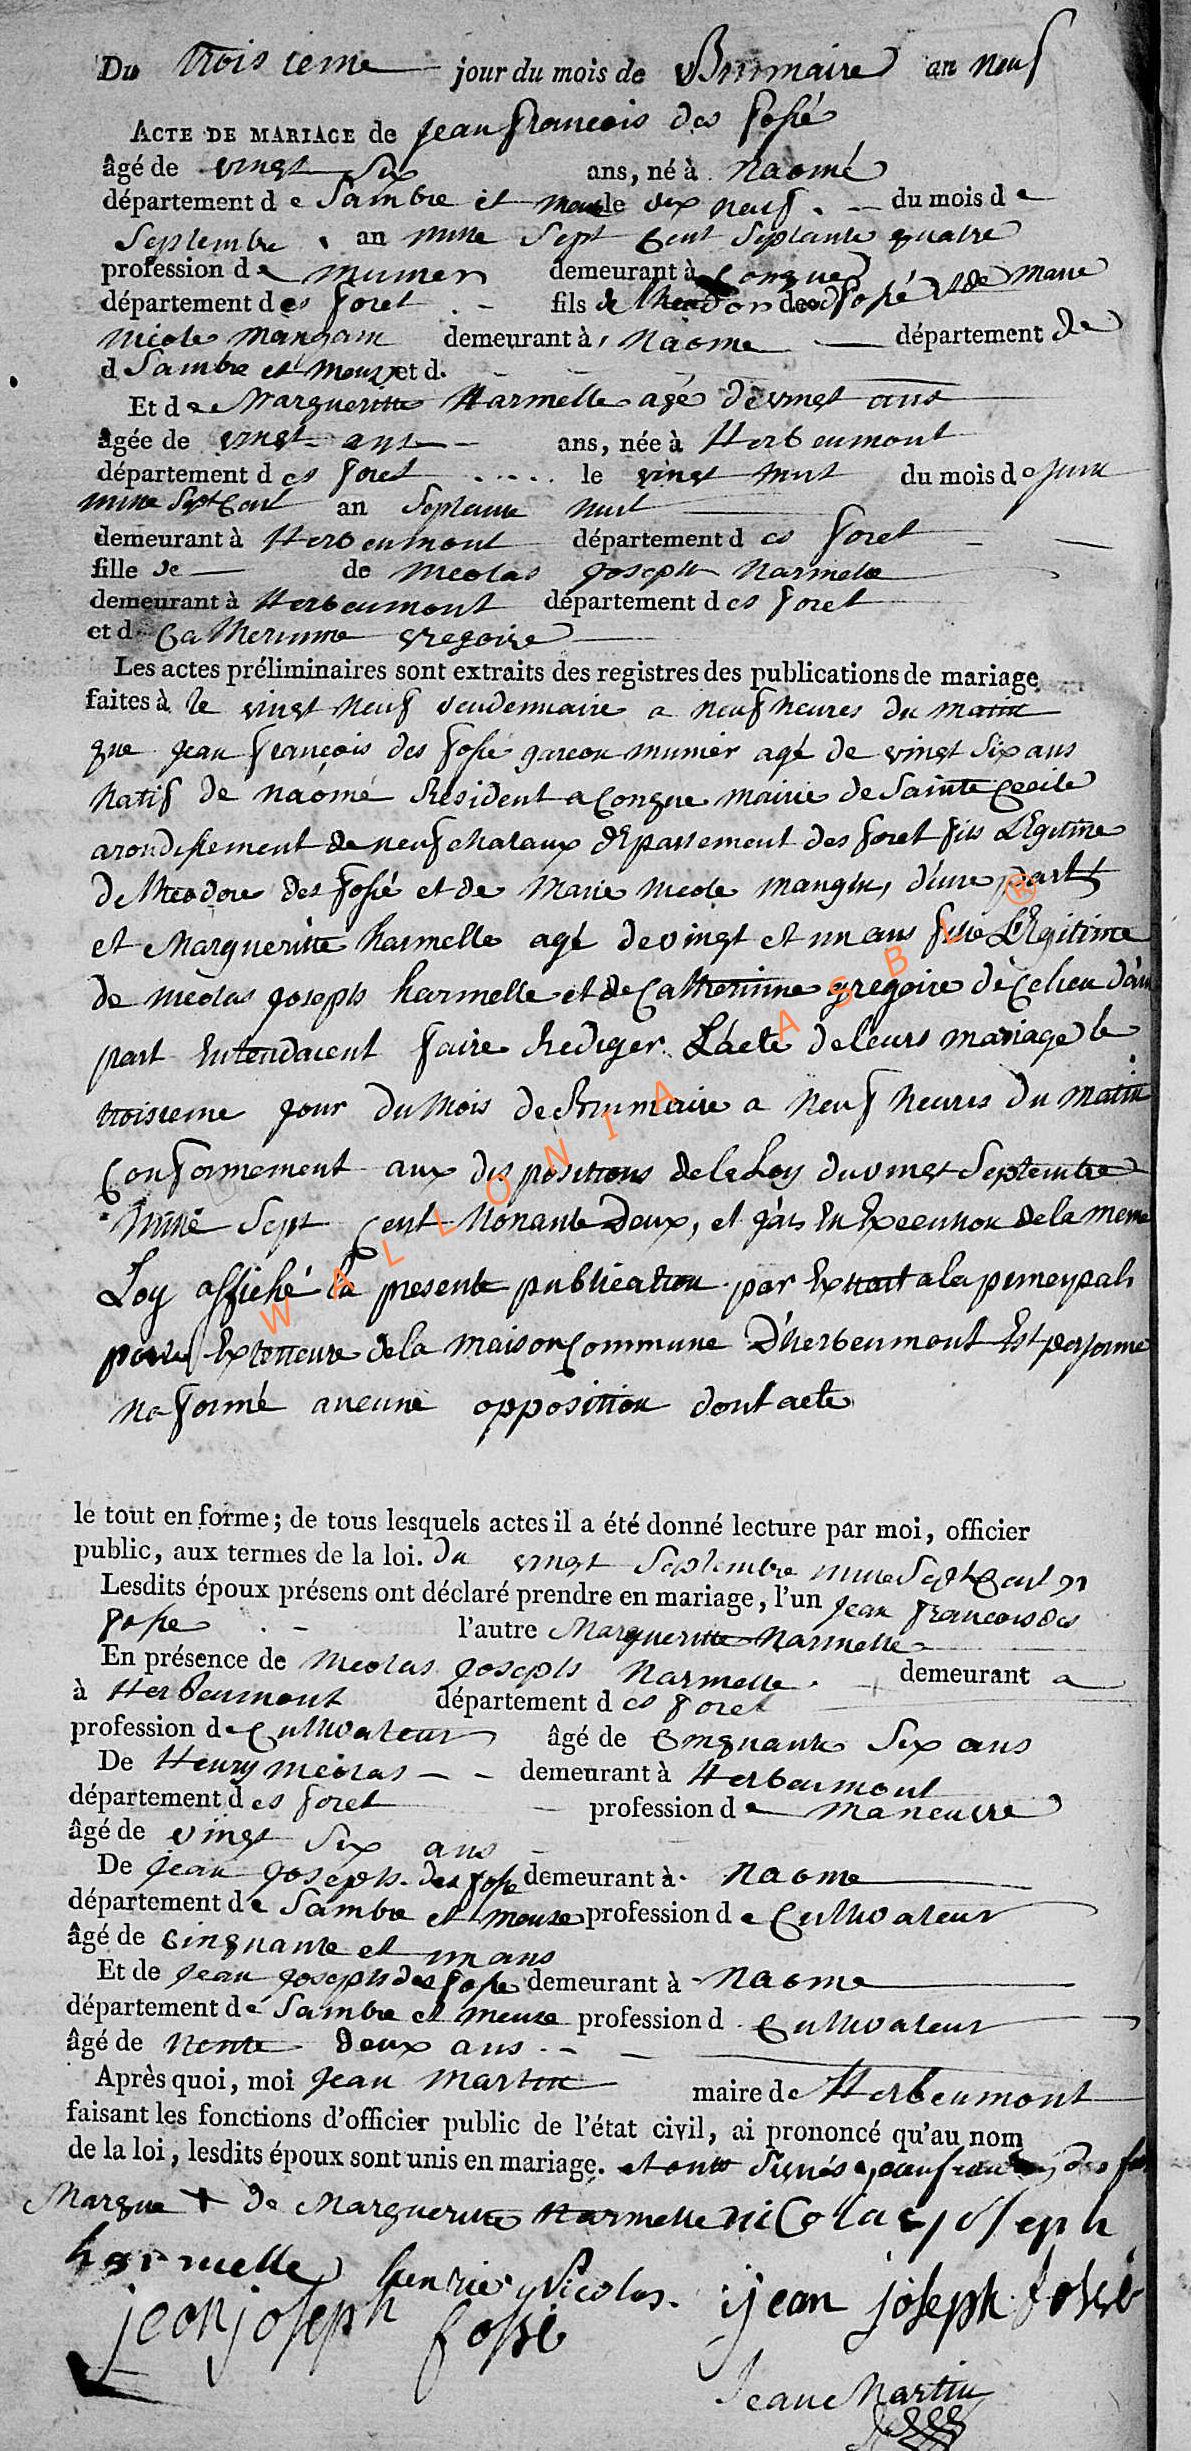 Du troisieme jour du mois de Brumaire an neuf
ACTE DE MARIAGE de jean francois des fossé
âgé de vingt six ans, né à Naomé
département d e Sambre et meuse le dix neuf du mois d e
Septembre an mille Sept Cent Septante quatre
profession d e munier demeurant à Conque
département d es foret fils de theodor des fossé et de marie
nicole mangain demeurant à Naome département de
d Sambre et Meuse et d.
Et d e Margueritte Harmelle agé de vingt ans
âgée de vingt ans ans, née à Herbeumont
département d es foret le vingt huit du mois d e juin
mille Sept Cent an Septante huit
demeurant à Herbeumont département d es foret
fille de de nicolas joseph harmelle
demeurant à Herbeumont département d es foret
et d Catherinne gregoire
Les actes préliminaires sont extraits des registres des publications de mariage
faites à le vingt neuf vendemiaire a neuf heures du matin
que jean françois des fossé garcon munier agé de vingt six ans
natif de naomé Résident a Conque mairie de Sainte Cecile
arondissement de neufchataux département des foret fils Légitime
de theodore des fossé et de Marie nicole mangin, d'une part
et Margueritte harmelle agé de vingt et un ans fille Légitime
de nicolas joseph harmelle et de Catherinne gregoire de Ce lieu d'aut
part Entendaient faire Rediger L'acte de leurs mariage le
troisieme jour du Mois de Brumaire a neuf heures du matin
Conformement aux dispositions de la Loy du vingt Septembre
mille Sept Cent Nonante Deux, et j'ais En Execution de la meme
Loy affiché la presente publication par Extrait a la principals
porte Exterieure de la maison Commune D'herbeumont Est personne
na formé aucune opposition dont acte
le tout en forme; de tous lesquels actes il a été donné lecture par moi, officier
public, aux termes de la loi. du vingt Septembre mille Sept Cent 92
Lesdits époux présens ont déclaré prendre en mariage, l'un jean francois des
fosse l'autre Margueritte Harmelle
En présence de nicolas joseph harmelle demeurant a
à Herbeumont département d es foret
profession d e Cultivateur âgé de Cinquante Six ans
De Henry nicolas demeurant à Herbeumont
département d es foret profession d e maneuvre
âgé de vingt six ans
De jean joseph des fosse demeurant à Naome
département d e Sambre et meuse profession d e Cultivateur
âgé de Cinquante et un ans
Et de jean joseph des fosse demeurant à Naome
département d e Sambre et meuse profession d Cultivateur
âgé de trente deux ans
Après quoi, moi jean martin maire de Herbeumont
faisant les fonctions d'officier public de l'état civil, ai prononcé qu'au nom
de la loi, lesdits époux sont unis en mariage. et ont Signés
Marque + de Margueritte harmelle nicolas joseph
harmelle henrier nicolas. jean joseph fossé
jean joseph fossé
Jean Martin
WALLONIA ASBL ®